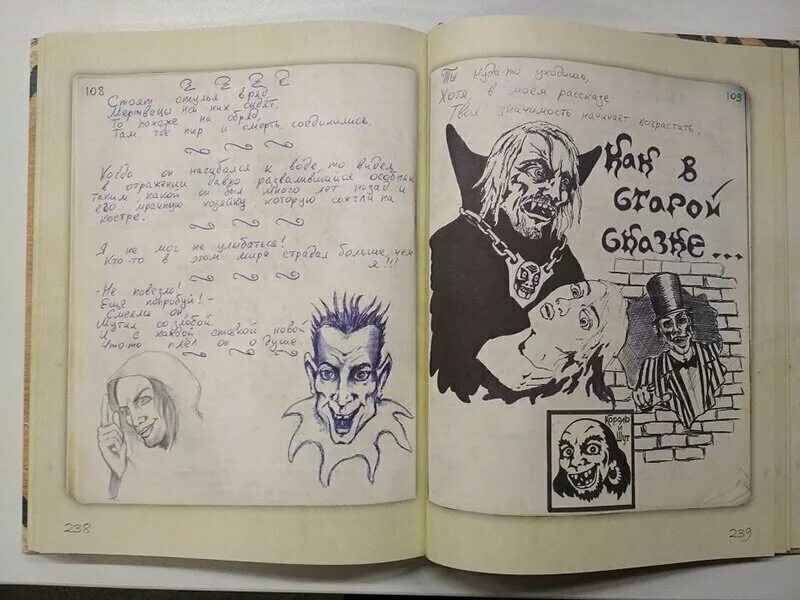 108
Стоят стулья в ряд,
Мертвецы на них сидят,
То похоже на обряд,
Там, где пир и смерть соединились.
Когда он нагибался к воде, то видел
в отражении давно развалившийся особняк
таким, какой он был много лет назад и
его мрачную хозяйку, которую сожгли на
костре.
Я не мог не улыбаться!
Кто-то в этом мире страдал больше, чем
я!!!
- Не повезло!
Ещё попробуй! -
Смеялся он,
Шутил со злобой,
И с каждой ставкой новой
Что-то плёл он о душе.
238
Ты куда-то уходишь,
Хотя, в моём рассказе
Твоя значимость начинает возрастать.
109
Как в
старой
сказке...
Король
и
Шут
239